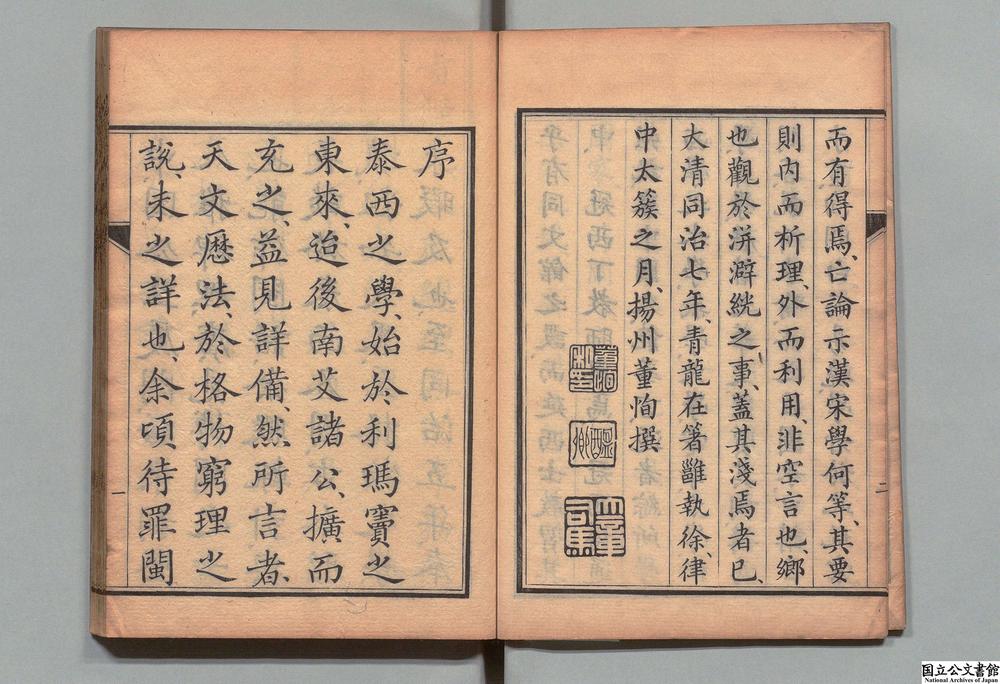 而有得焉、亡論示漢宋學何等、其要
則内而析理、外而利用、非空言也、鄉
也觀於洴澼絖之事、蓋其淺焉者已、
大清同治七年、青龍在箸雝執徐、律
中太簇之月、揚州董恂撰
董恂私印
醞卿
大司馬
序
泰西之學、始於利瑪竇之
東來、迨後南艾諸公、擴而
充之、益見詳備、然所言者、
天文歷法、於格物窮理之
說、未之詳也、余頃待罪閩
二
一
国立公文書館
National Archives of Japan